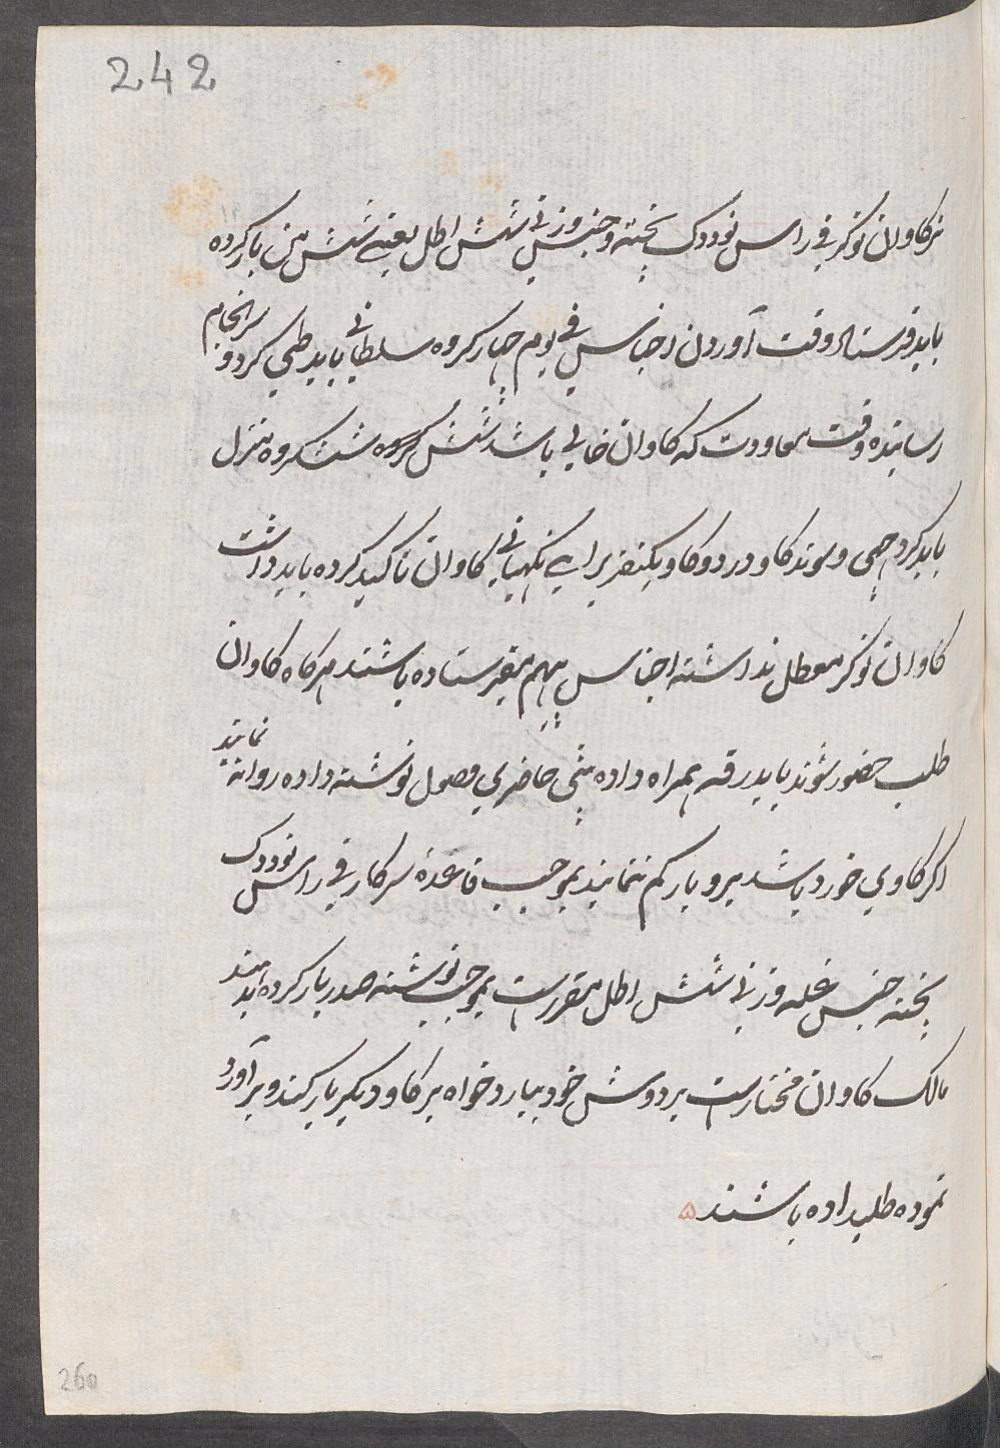 242
نرکاوان نوکر فی راس نوددک پخته و جنس وزنی شش اطل یعنی شش من بار کرده
باید فرستاد وقت آوردن اجناس فی یوم چهار کروه سلطانی باید طی کرد و سرانجام
رسانیده وقت معاودت که کاوان خالی باشد شش کروه شش کروه منزل
باید کرد و در دو کاو یکنفر برای نکهبانی کاوان تاکید کرده باید داشت
کاوان نوکر معطل نداشته اجناس بهم میفرستاده باشند هرکاه کاوان
طلب حضور شوند بابدرقه همراه داده حاضری وصول نوشته داده روانه نمایند
اکر کاوی خورد باشد برو بار کم ننمایند بموجب قاعدۀ سرکار فی راس نوددک
پخته جنس غله وزنی شش اطل مقررست بموجب نوشته صدر بار کرده بدهند
مالک کاوان مختارست بر دوش خود بیارد خواه بر کاو دیکر بار کند و برآورد
نموده طلب داده باشند ۵
260